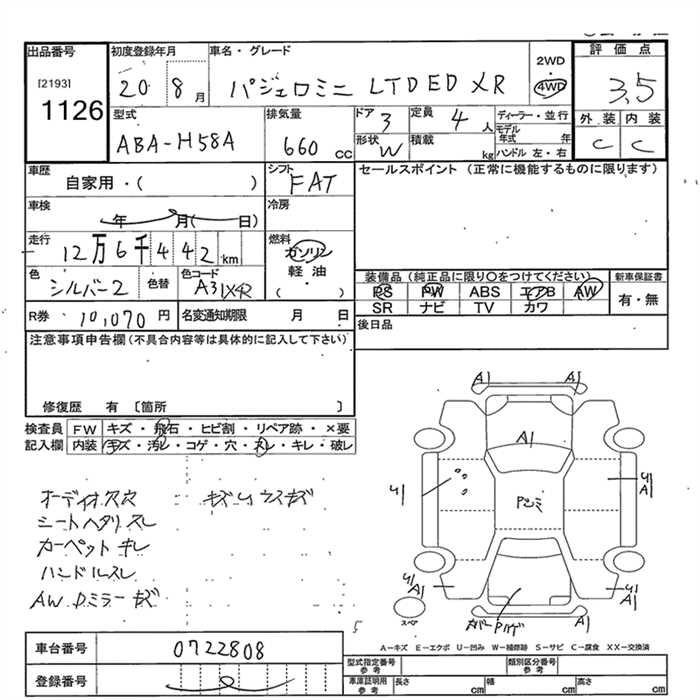 出品番号 初度登録年月 車名・グレード 2WD 評価点
[2193] 20 8月 パジェロミニ LTD ED XR 4WD 3.5
1126
型式 排気量 ドア 定員 ディーラー・並行 外装 内装
ABA-H58A 660cc 3 4人 モデル年式 年 C C
形状 W 積載 kg ハンドル 左・右
車歴 シフト セールスポイント (正常に機能するものに限ります)
自家用・( ) FAT
車検 冷房
年 月( 日)
走行 燃料
12万6千442km ガソリン
軽油
( )
色 色替 色コード 装備品(純正品に限り○をつけてください) 新車保証書
シルバー2 A31 XR PS PW ABS エアB AW 有・無
SR ナビ TV カワ
R券 10,070円 名変通知期限 月 日 後日品
注意事項申告欄(不具合内容等は具体的に記入して下さい)
修復歴 有 〔箇所 〕
検査員 FW キズ・飛石・ヒビ割・リペア跡・×要
記入欄 内装 キズ・汚レ・コゲ・穴・スレ・キレ・破レ
オーディオ欠穴 キズ凹ウスキズ
シートヘタリスレ
カーペットキレ
ハンドルスレ
AW Dミラーキズ
A1 A1
A1
凹1 Pシミ 凹1
A1
凹1 凹1
A1 A1
スペア カバーPハゲ
A-キズ E-エクボ U-凹み W-補修跡 S-サビ C-腐食 XX-交換済
車台番号 0722808
登録番号
型式指定番号 類別区分番号
参考 参考
車庫証明用 長さ 幅 高さ
参考 cm cm cm